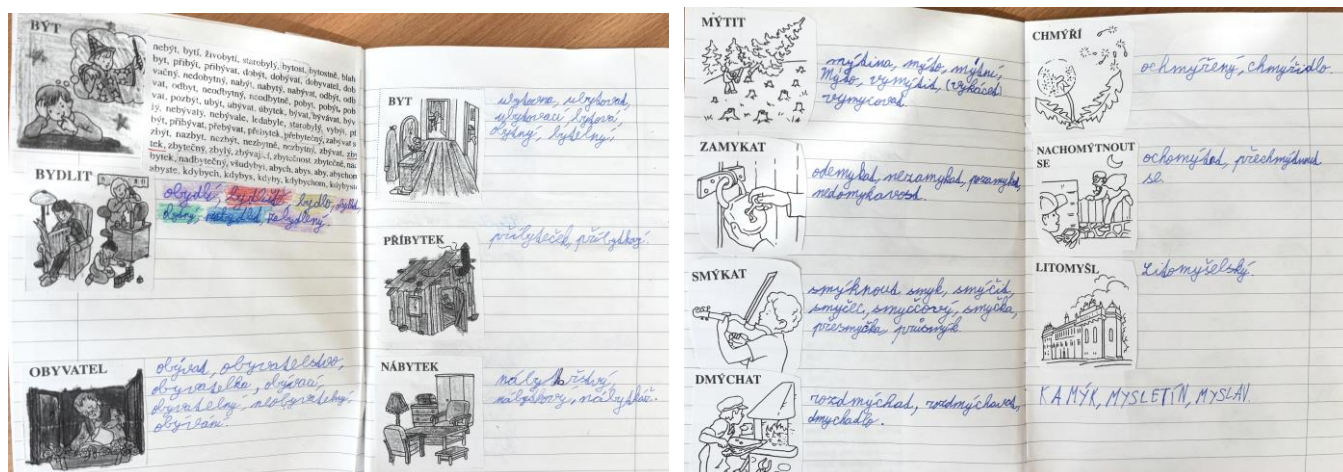 BÝT
nebýt, bytí, živobytí, starobylý, bytost, bytostně, blah
byt, přibýt, přibývat, dobýt, dobývat, dobyvatel, dob
vačný, nedobytný, nabýt, nabytý, nabývat, odbýt, odb
vat, odbyt, neodbytný, neodbytně, pobyt, pobýt, pob
vat, pozbyt, ubýt, ubývat, úbytek, bývat, bývávat, býv
lý, nebývalý, nebývale, ledabyle, starobylý, vybýt, př
být, přibývat, přebývat, přebytek, přebytečný, zabývat s
zbýt, nazbyt, nezbýt, nezbytně, nezbytný, zbývat, zby
tek, zbytečný, zbylý, zbývající, zbytečnost, zbytečně, nad
bytek, nadbytečný, všudybyl, abych, abys, aby, abychom
abyste, kdybych, kdybys, kdyby, kdybychom, kdybyste
BYDLIT
obydlí, bydliště, bydlo,
zabydlený.
OBYVATEL
obývat, obyvatelstvo,
obyvatelka, obývací,
obyvatelný, neobyvatelný,
obývaní.
BYT
ubytovna, ubytovat,
ubytovací, bytová,
bytný, bytelný,
PŘÍBYTEK
příbyteček, příbytkový.
NÁBYTEK
nábytkářství,
nábytkový, nábytkář.
MÝTIT
mýtina, mýto, mýtné,
Mýto, vymýtit, (vykácet)
vymycovat
ZAMYKAT
odemykat, nezamykat, pozamykat,
nedomykavost.
SMÝKAT
smýknout smyk, smýčit,
smyčec, smyčcový, smyčka,
přesmyčka, průsmyk
DMÝCHAT
rozdmýchat, rozdmýchavat,
dmychadlo.
CHMÝŘÍ
ochmýřený, chmýřidlo.
NACHOMÝTNOUT
SE
ochomýtat, přechmýtnout
se.
LITOMYŠL
Litomyšelský.
KAMÝK, MYSLETÍN, MYSLAV.